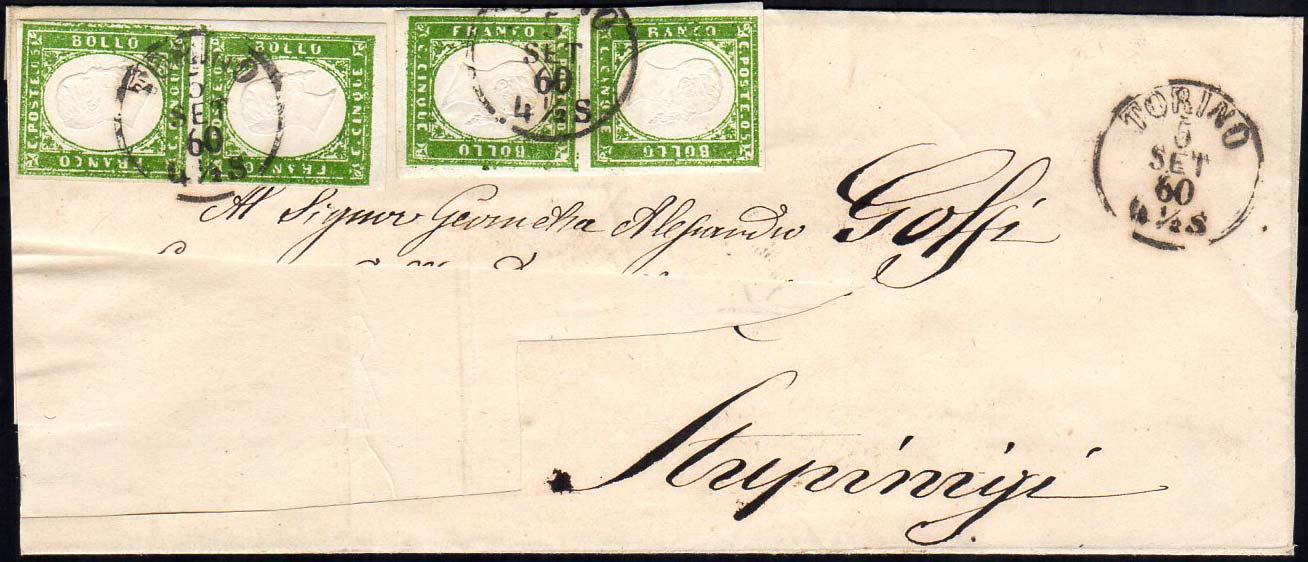 BOLLO BOLLO
C. POSTE. 05 C. CINQUE C. CINQUE
FRANCO FRANCO
TORINO
5
SET
60
4 ½ S
FRANCO RANCO
C. CINQUE C. CINQUE C. POSTE. 05
BOLLO BOLLO
NO
5
SET
60
4 ½ S
TORINO
5
SET
60
4 ½ S
Al Signor Geometra Alessandro Goffi
Stupinigi